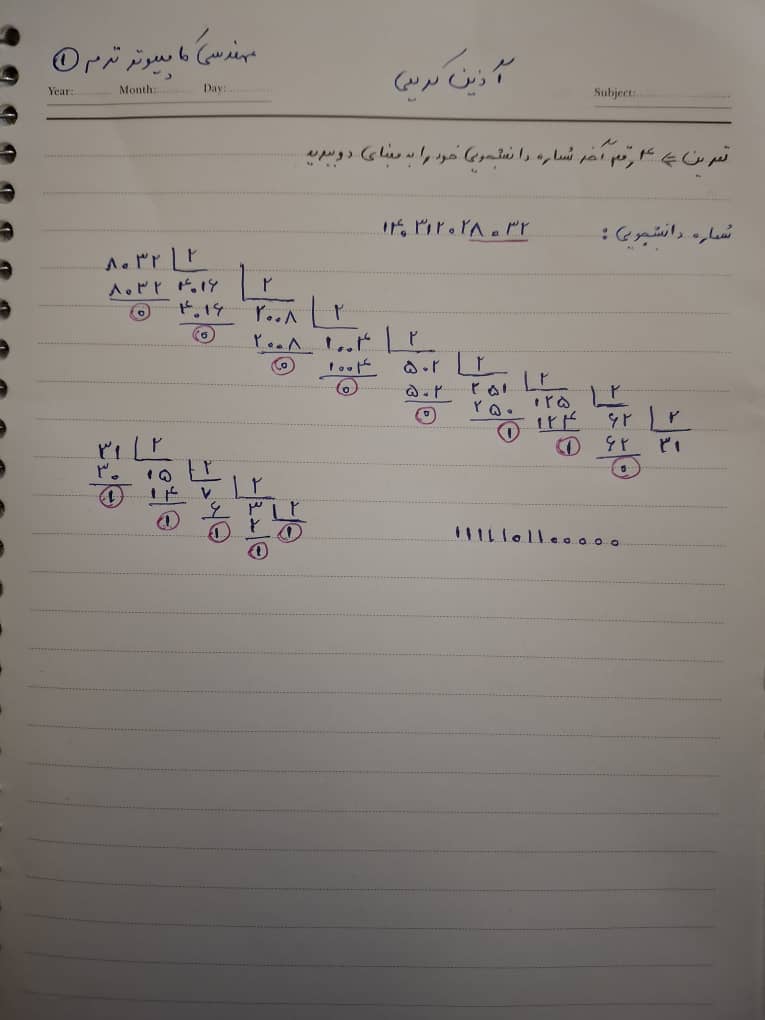 مهندسی کامپیوتر ترم ۱
آذین کریمی
Year: Month: Day: Subject:
تمرین => ۴ رقم آخر شماره دانشجویی خود را به مبنای دو ببرید
شماره دانشجویی : ۱۴۰۳۱۲۰۲۸۰۳۲
۸۰۳۲ ۲
۸۰۳۲ ۴۰۱۶ ۲
۰ ۴۰۱۶ ۲۰۰۸ ۲
۰ ۲۰۰۸ ۱۰۰۴ ۲
۰ ۱۰۰۴ ۵۰۲ ۲
۰ ۵۰۲ ۲۵۱ ۲
۰ ۲۵۰ ۱۲۵ ۲
۱ ۱۲۴ ۶۲ ۲
۱ ۶۲ ۳۱
۰
۳۱ ۲
۳۰ ۱۵ ۲
۱ ۱۴ ۷ ۲
۱ ۶ ۳ ۲
۱ ۲ ۱
۱
۱۱۱۱۱۰۱۱۰۰۰۰۰